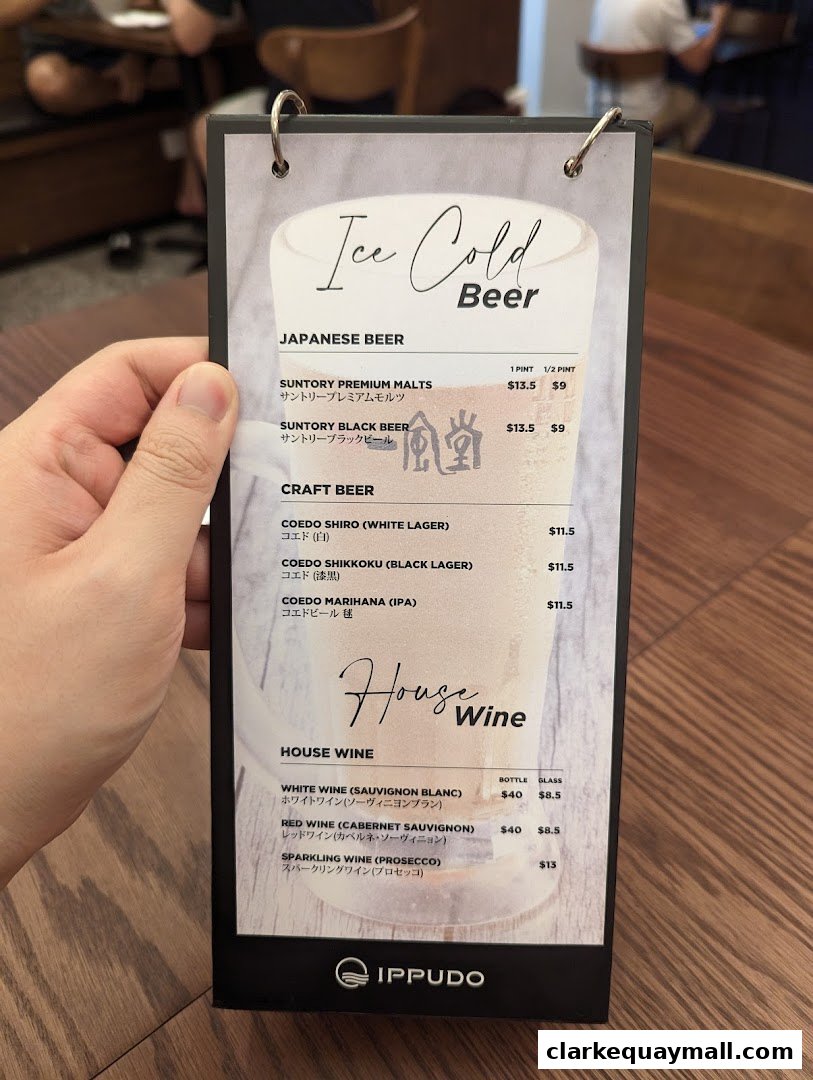 Ice Cold
Beer
JAPANESE BEER
1 PINT 1/2 PINT
SUNTORY PREMIUM MALTS $13.5 $9
サントリープレミアムモルツ
SUNTORY BLACK BEER $13.5 $9
サントリーブラックビール
一風堂
CRAFT BEER
COEDO SHIRO (WHITE LAGER) $11.5
コエド (白)
COEDO SHIKKOKU (BLACK LAGER) $11.5
コエド (漆黒)
COEDO MARIHANA (IPA) $11.5
コエドビール 毬
House
Wine
HOUSE WINE
BOTTLE GLASS
WHITE WINE (SAUVIGNON BLANC) $40 $8.5
ホワイトワイン(ソーヴィニヨンブラン)
RED WINE (CABERNET SAUVIGNON) $40 $8.5
レッドワイン(カベルネ・ソーヴィニョン)
SPARKLING WINE (PROSECCO) $13
スパークリングワイン(プロセッコ)
IPPUDO
clarkequaymall.com